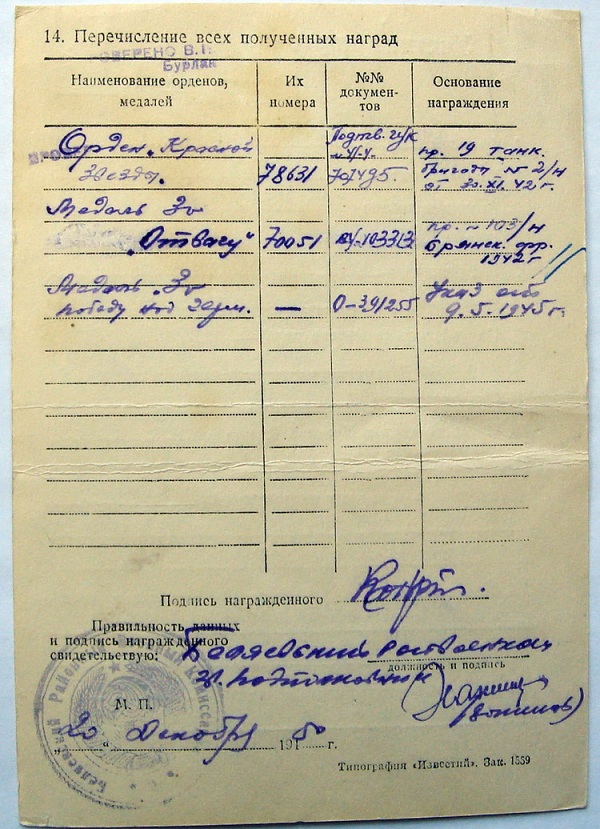 14. Перечисление всех полученных наград
Наименование орденов, медалей
Их номера
№№ документов
Основание награждения
Орден „Красной
Звезды.
78631
707495.
пр. 19 танк.
бригады № 2/н
от 30.XI.42 г.
Медаль За
„Отвагу"
70051
пр. № 103/н
Брянск. фр.
1942 г
Медаль За
победу над Герм.
—
О-391255
Указ от
9.5.1945 г.
Подпись награжденного
Правильность данных
и подпись награжденного
свидетельствую:
Беляевский райвоенком
должность и подпись
подполковник
М. П.
„20" Декабря 1950 г.
Типография «Известий». Зак. 1559